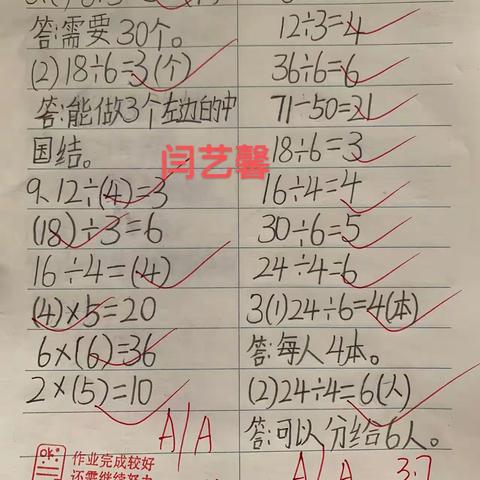 答:需要30个。
(2)18÷6=3(个)
答:能做3个左边的中
国结。
9、12÷(4)=3
(18)÷3=6
16÷4=(4)
(4)×5=20
6×(6)=36
2×(5)=10
A/A
作业完成较好
还需继续努力
闫艺馨
12÷3=4
36÷6=6
71-50=21
18÷6=3
16÷4=4
30÷6=5
24÷4=6
3(1)24÷6=4(本)
答:每人4本。
(2)24÷4=6(人)
答:可以分给6人。
A/A 3.7